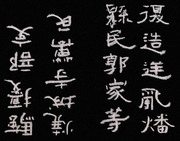 復造逆亂燔
縣民郭家等
燒城寺萬民
騷擾